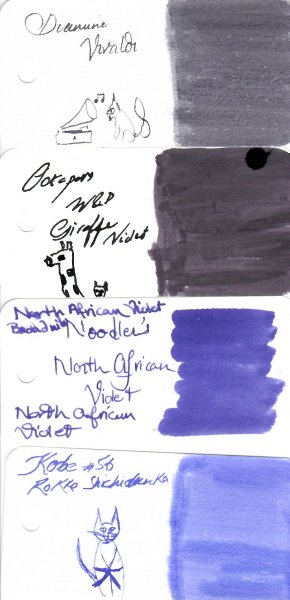 Diamine
Vivaldi
Octopus
W&D
Giraffe
Violet
North African Violet
Broad nib Noodler's
North African
Violet
North African
Violet
Kobe #56
Rokko Shichidanka